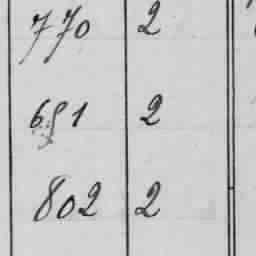 770 2
691 2
802 2